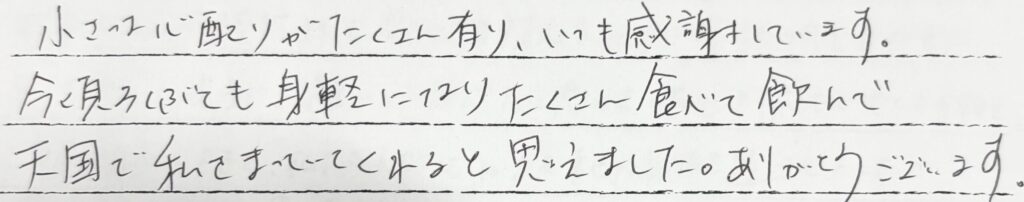 小さな心配りがたくさん有り、いつも感謝しています。
今頃るぶても身軽になりたくさん食べて飲んで
天国で私をまっていてくれると思えました。ありがとうございます。